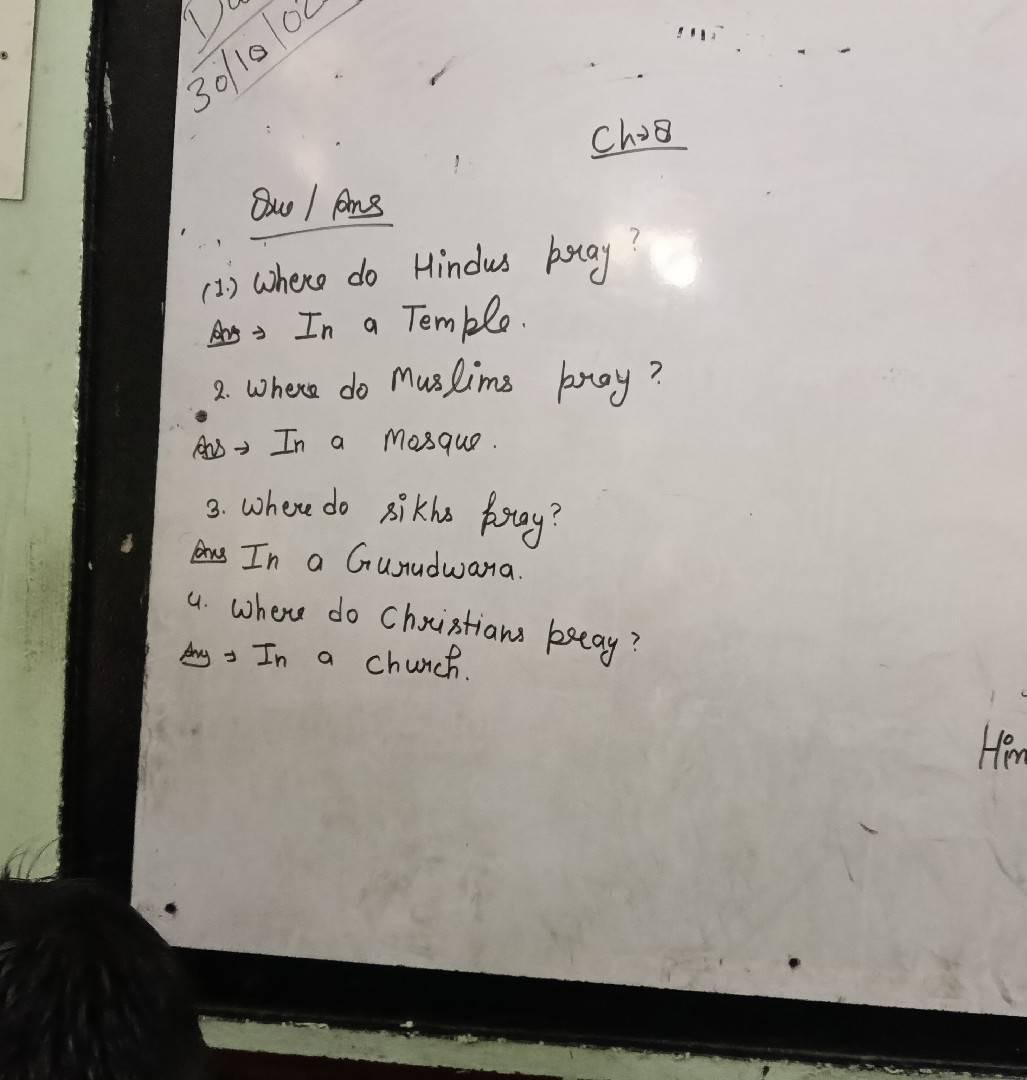 30/10/02
Ch→8
Que / Ans
(1.) Where do Hindus pray?
Ans → In a Temple.
2. Where do Muslims pray?
Ans → In a Mosque.
3. Where do sikhs pray?
Ans In a Gurudwara.
4. Where do Christians pray?
Ans → In a church.
Hin